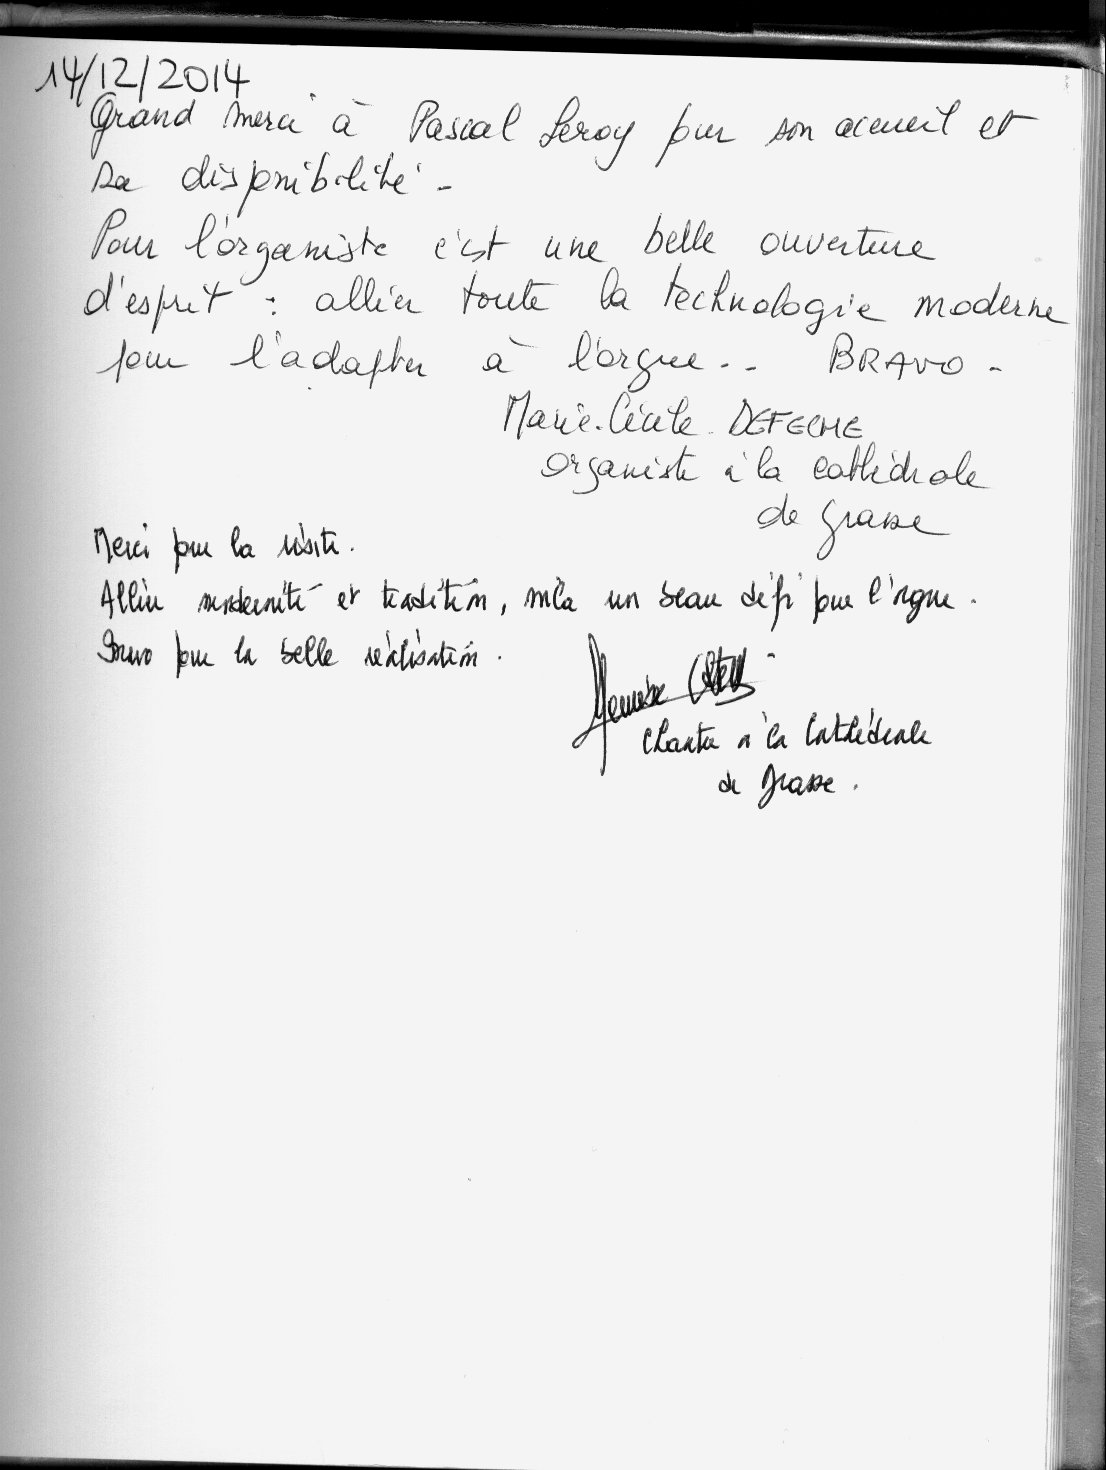 14/12/2014
Grand merci à Pascal Leroy pour son accueil et
sa disponibilité -
Pour l'organiste c'est une belle ouverture
d'esprit : allier toute la technologie moderne
pour l'adapter à l'orgue.. BRAVO -
Marie-Cécile DEFECHE
organiste à la cathédrale
de Grasse
Merci pour la visite.
Allier modernité et tradition, voilà un beau défi pour l'orgue.
Bravo pour la belle réalisation.
chantre à la Cathédrale
de Grasse.